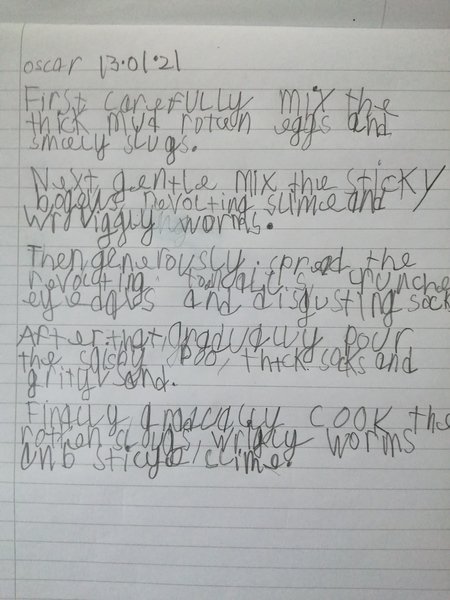 oscar 13.01.21
First carefully mix the
thick mud rotean eggs and
smeely slugs.
Next gentle mix the sticky
bogeys revolting slime and
wrviggly worms.
Then generously spread the
revolting the crunche
and disgusting sock
After that graduawy pour
the poo, thick socks and
grityv sand.
cook the
rotten wrigly worms
anb slime.